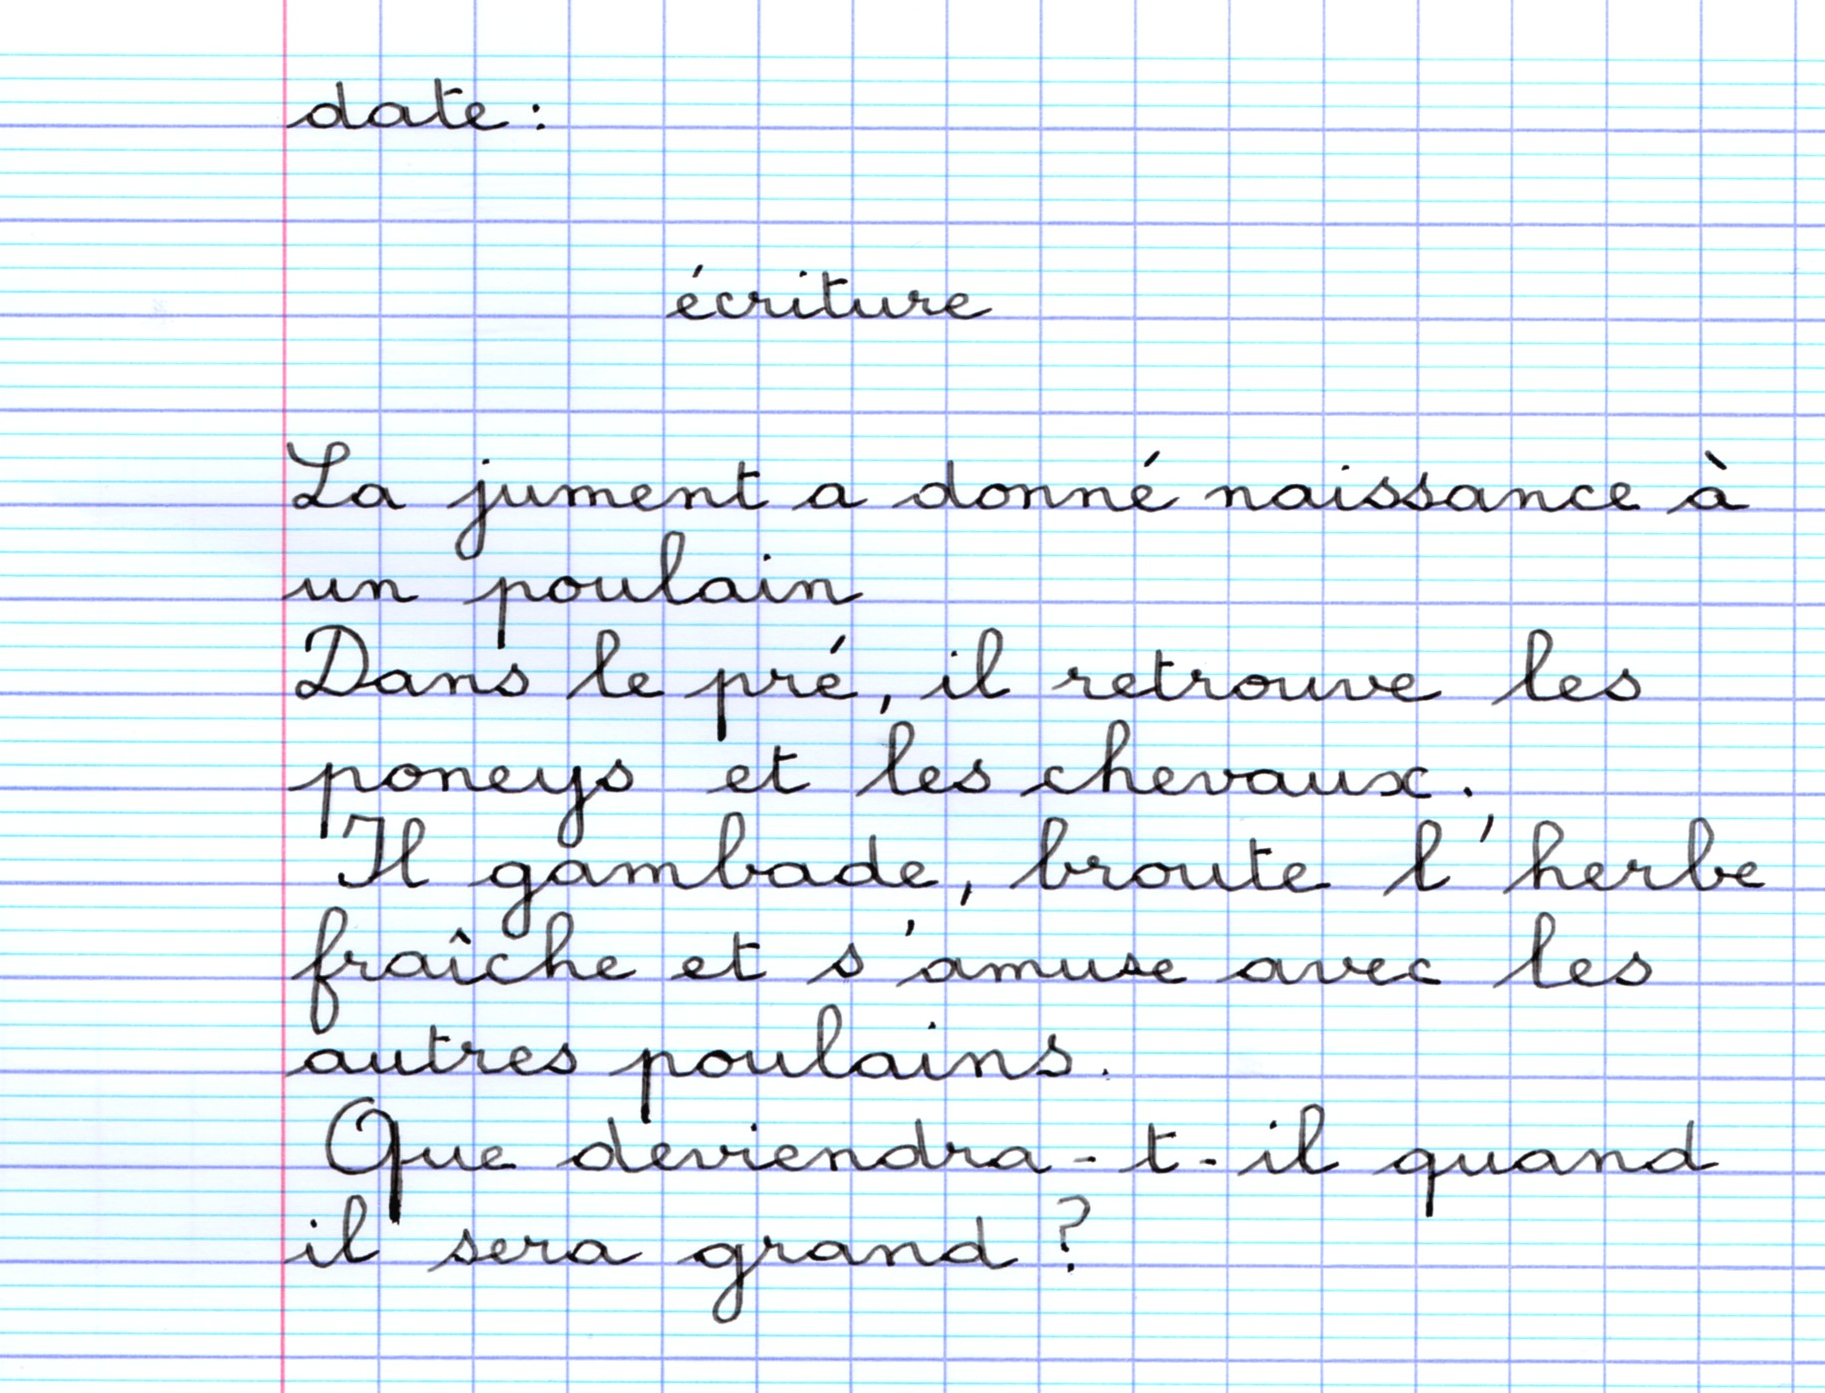 date :
écriture
La jument a donné naissance à
un poulain
Dans le pré, il retrouve les
poneys et les chevaux.
Il gambade, broute l'herbe
fraîche et s'amuse avec les
autres poulains.
Que deviendra-t-il quand
il sera grand ?